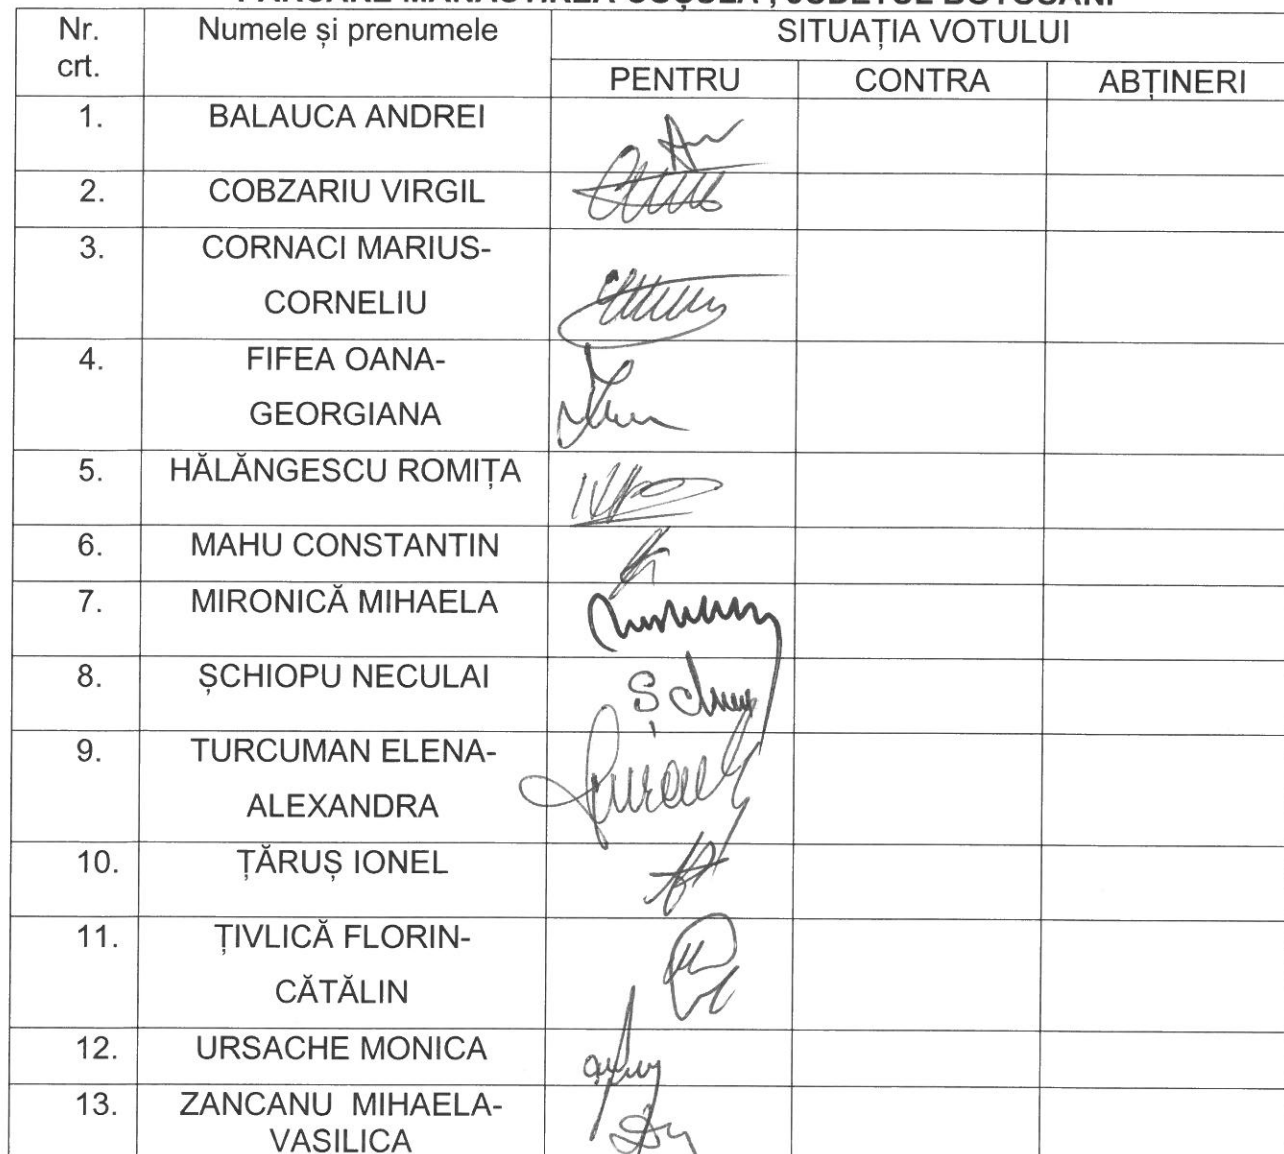 JUDEȚUL BOTOȘANI
Nr. crt.
Numele și prenumele
SITUAȚIA VOTULUI
PENTRU
CONTRA
ABȚINERI
1. BALAUCA ANDREI
2. COBZARIU VIRGIL
3. CORNACI MARIUS-
CORNELIU
4. FIFEA OANA-
GEORGIANA
5. HĂLĂNGESCU ROMIȚA
6. MAHU CONSTANTIN
7. MIRONICĂ MIHAELA
8. ȘCHIOPU NECULAI
9. TURCUMAN ELENA-
ALEXANDRA
10. ȚĂRUȘ IONEL
11. ȚIVLICĂ FLORIN-
CĂTĂLIN
12. URSACHE MONICA
13. ZANCANU MIHAELA-
VASILICA